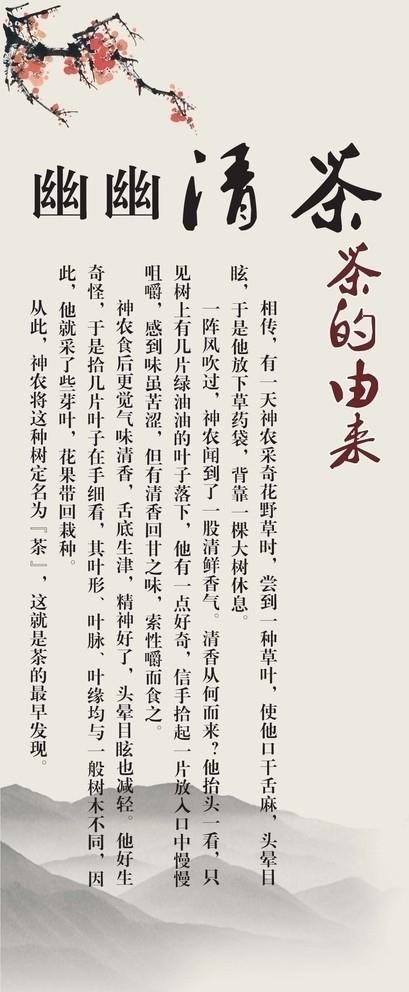 茶清幽幽
茶的由来
相传，有一天神农采奇花野草时，尝到一种草叶，使他口干舌麻，头晕目
眩，于是他放下草药袋，背靠一棵大树休息。
一阵风吹过，神农闻到了一股清鲜香气。清香从何而来？他抬头一看，只
见树上有几片绿油油的叶子落下，他有一点好奇，信手拾起一片放入口中慢慢
咀嚼，感到味虽苦涩，但有清香回甘之味，索性嚼而食之。
神农食后更觉气味清香，舌底生津，精神好了，头晕目眩也减轻。他好生
奇怪，于是拾几片叶子在手细看，其叶形、叶脉、叶缘均与一般树木不同，因
此，他就采了些芽叶，花果带回栽种。
从此，神农将这种树定名为『茶』，这就是茶的最早发现。